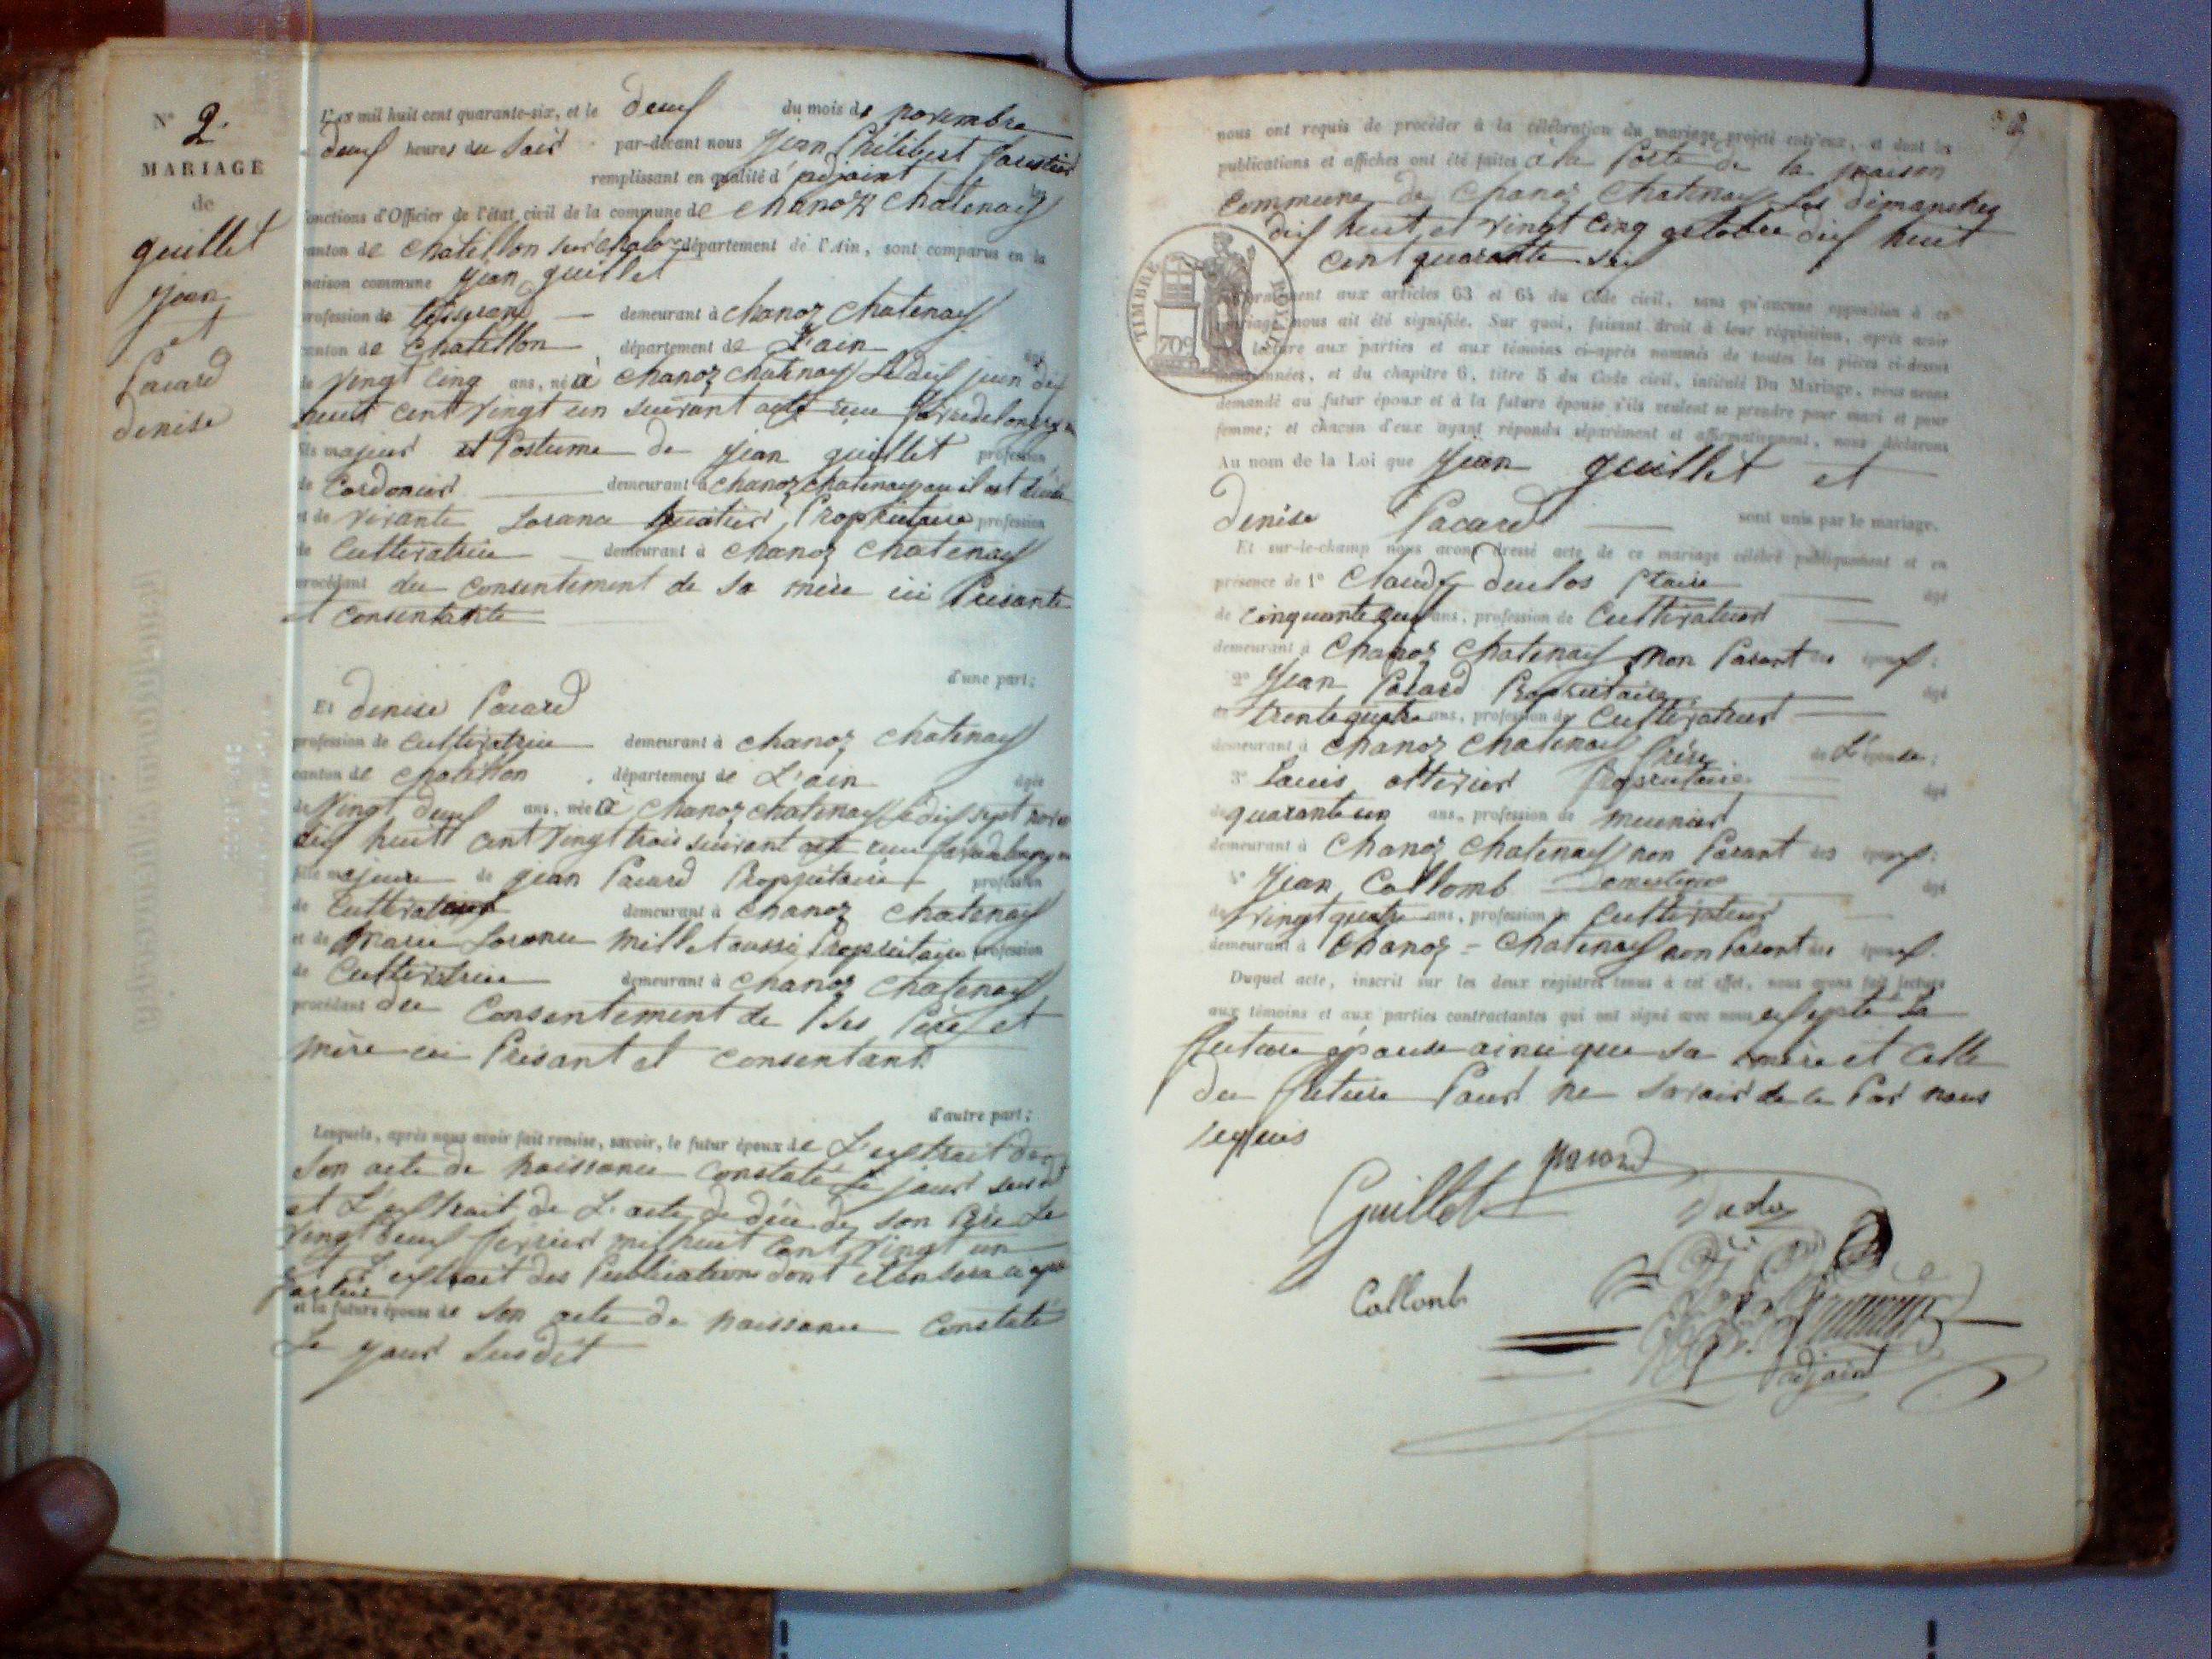 N° 2.
MARIAGE
de
guillet
jean
et
Pacard
denise
L'an mil huit cent quarante-six, et le deux du mois de novembre
deux heures du soir par-devant nous Jean Philibert
remplissant en qualité d'adjoint les
fonctions d'Officier de l'état civil de la commune de chanoz chatenay
canton de chatillon sur chalar département de l'Ain, sont comparus en la
maison commune jean guillet
profession de tisserand demeurant à chanoz chatenay
canton de chatillon département de L'ain âgé
de vingt cinq ans, né à chanoz chatenay Le dix juin dix
huit cent vingt un suivant acte
fils majeur et Postume de jean guillet profession
de Cordonier demeurant à chanoz chatenay ou il est
et de vivante Propriétaire profession
de Cultivatrice demeurant à chanoz chatenay
procédant du consentement de sa mère ici Présante
et consentante
d'une part;
Et denise Pacard
profession de cultivatrice demeurant à chanoz chatenay
canton de chatillon département de L'ain âgée
de vingt deux ans, née à chanoz chatenay le dix sept
dix huit cent vingt trois suivant acte
fille majeure de jean Pacard Propriétaire profession
de Cultivateur demeurant à chanoz chatenay
et de Marie millet aussi Propriétaire profession
de Cultivatrice demeurant à chanoz chatenay
procédant du Consentement de ses Père et
mère ici Présant et consentant.
d'autre part;
Lesquels, après nous avoir fait remise, savoir, le futur époux de L'extrait de
son acte de naissance constaté le jour susdit
et L'extrait de L'acte de de son Père Le
vingt deux février mil huit cent vingt un
L'extrait des Publications dont il en sera ci après
et la future épouse de son acte de naissance constaté
Le jour susdit
nous ont requis de procéder à la célébration du mariage projeté entr'eux, et dont les
publications et affiches ont été faites à la Porte de la maison
commune de chanoz chatenay Les dimanches
dix huit et vingt cinq octobre dix huit
cent quarante six
TIMBRE ROYAL
709
conformément aux articles 63 et 64 du Code civil, sans qu'aucune opposition à ce
mariage nous ait été signifiée. Sur quoi, faisant droit à leur réquisition, après avoir
lecture aux parties et aux témoins ci-après nommés de toutes les pièces ci-dessus
mentionnées, et du chapitre 6, titre 5 du Code civil, intitulé Du Mariage, nous avons
demandé au futur époux et à la future épouse s'ils veulent se prendre pour mari et pour
femme; et chacun d'eux ayant répondu séparément et affirmativement, nous déclarons
Au nom de la Loi que jean guillet et
denise Pacard sont unis par le mariage.
Et sur-le-champ nous avons dressé acte de ce mariage célébré publiquement et en
présence de 1° Claude duclos âgé
de cinquante ans, profession de Cultivateur
demeurant à chanoz chatenay non Parant des époux;
2° jean Pacard Propriétaire âgé
de trente quatre ans, profession de Cultivateur
demeurant à chanoz chatenay frère de L'épouse;
3° Louis Propriétaire âgé
de quarante un ans, profession de meunier
demeurant à chanoz chatenay non Parant des époux;
4° jean Collomb Domestique âgé
de vingt quatre ans, profession de Cultivateur
demeurant à chanoz - chatenay non Parant des époux.
Duquel acte, inscrit sur les deux registres tenus à cet effet, nous avons fait lecture
aux témoins et aux parties contractantes qui ont signé avec nous exepté La
future épouse ainsi que sa mère et celle
du future Pour ne savoir de ce Par nous
requis
Guillet pacard
Collomb
adjoint